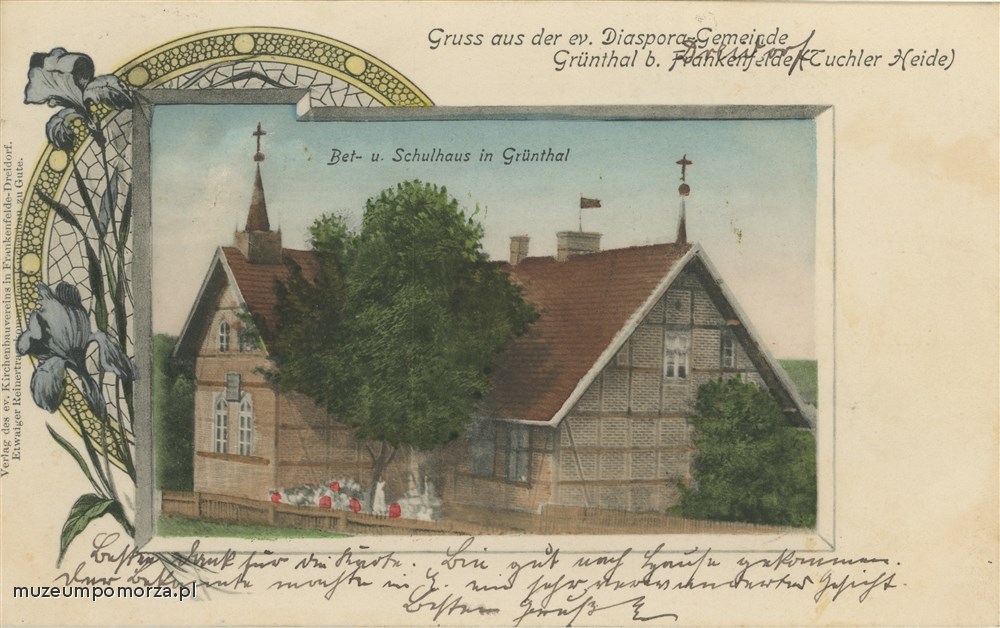 Gruss aus der ev. Diaspora-Gemeinde
Dreidorf
Grünthal b. Frankenfelde (Tuchler Heide)
Bet- u. Schulhaus in Grünthal
Verlag des ev. Kirchenbauvereins in Frankenfelde-Dreidorf.
Etwaiger Reinertrag kommt dem Kirchbau zu Gute.
Besten Dank für die Karte. Bin gut nach Hause gekommen.
Der Bekannte machte in E. ein sehr verwundertes Gesicht.
Besten Gruß
muzeumpomorza.pl